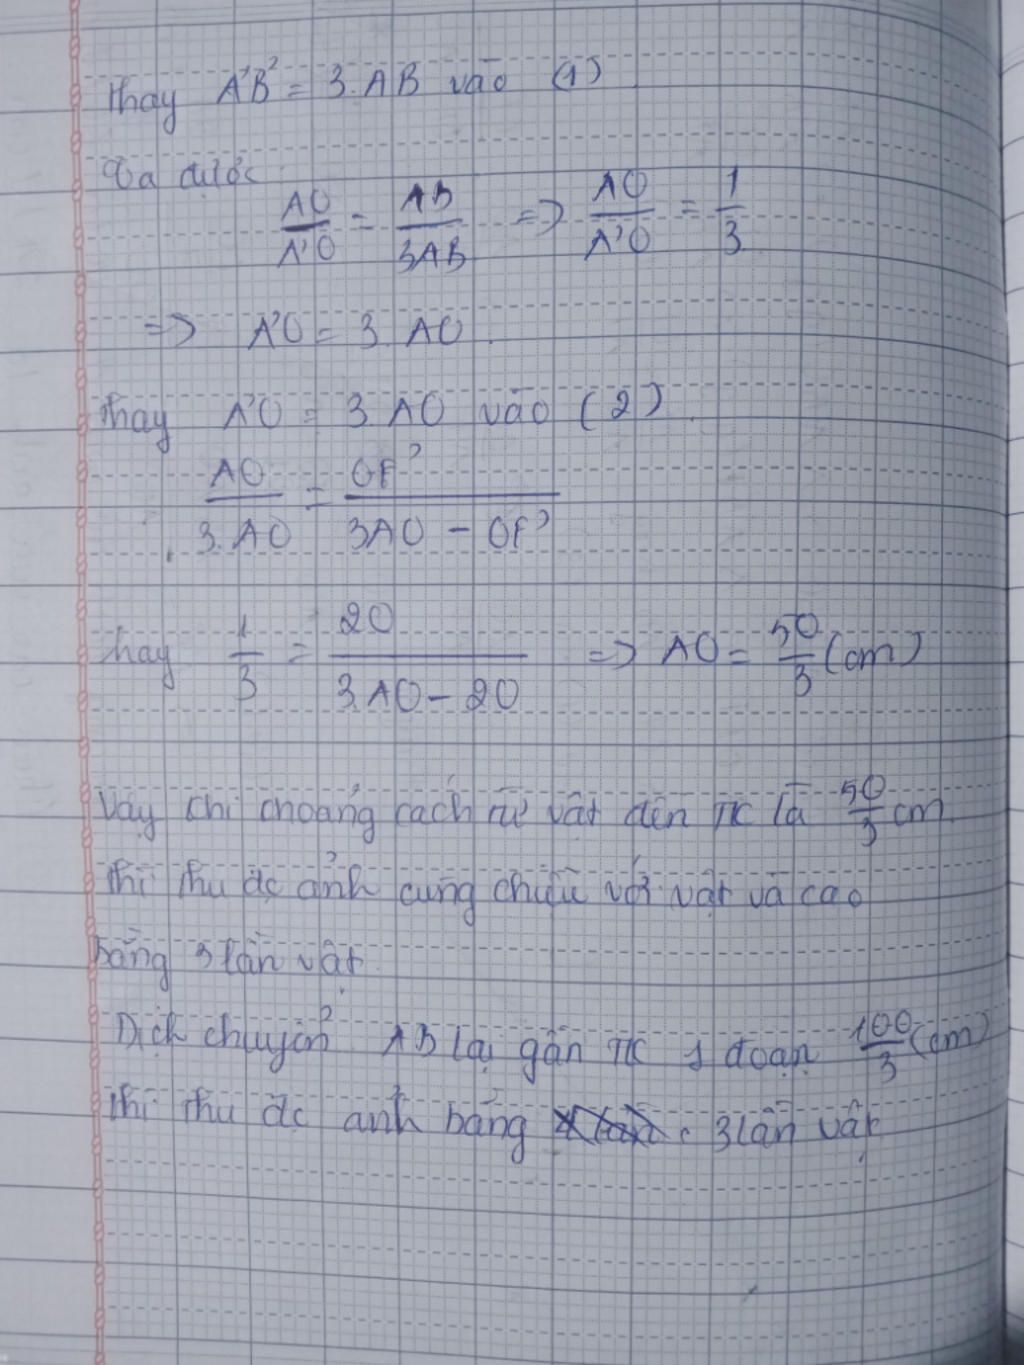 Thay A'B' = 3.AB vào (1)
Ta được
AO/A'O = AB/3AB => AO/A'O = 1/3
=> A'O = 3.AO.
Thay A'O = 3.AO vào (2)
AO/3.AO = OF'/3AO - OF'
hay 1/3 = 20/3.AO - 20 => AO = 50/3 (cm)
Vậy khi khoảng cách từ vật đến TK là 50/3 cm
thì thu đc ảnh cùng chiều với vật và cao
bằng 3 lần vật.
Dịch chuyển AB lại gần TK 1 đoạn 100/3 (cm)
thì thu đc ảnh bằng 3 lần vật